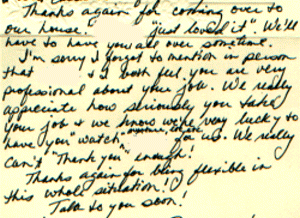 Thanks again for coming over to
our house. "just loved it". We'll
have to have you all over sometime.
I'm sorry I forgot to mention in person
that & I both feel you are very
professional about your job. We really
appreciate how seriously you take
your job & we know we're very lucky to
have you "watch" for us. We really
can't "Thank you" enough!
Thanks again for being flexible in
this whole situation!
Talk to you soon!